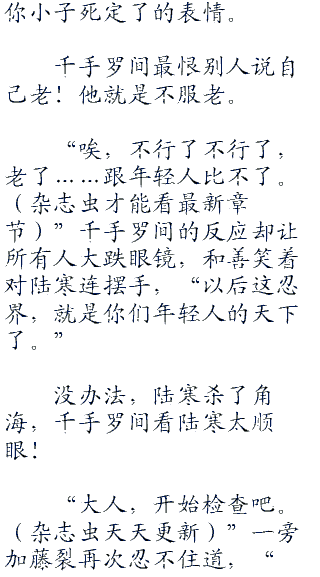 你小子死定了的表情。
千手罗间最恨别人说自
己老！他就是不服老。
“唉，不行了不行了，
老了……跟年轻人比不了。
（杂志虫才能看最新章
节）”千手罗间的反应却让
所有人大跌眼镜，和善笑着
对陆寒连摆手，“以后这忍
界，就是你们年轻人的天下
了。”
没办法，陆寒杀了角
海，千手罗间看陆寒太顺
眼！
“大人，开始检查吧。
（杂志虫天天更新）”一旁
加藤裂再次忍不住道，“